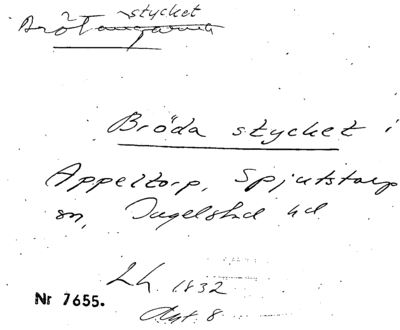 stycket
Bröda stycket i
Appeltorp, Spjutstorp
sn, Ingelstad hd
Lh. 1832
Akt. 8
Nr 7655.